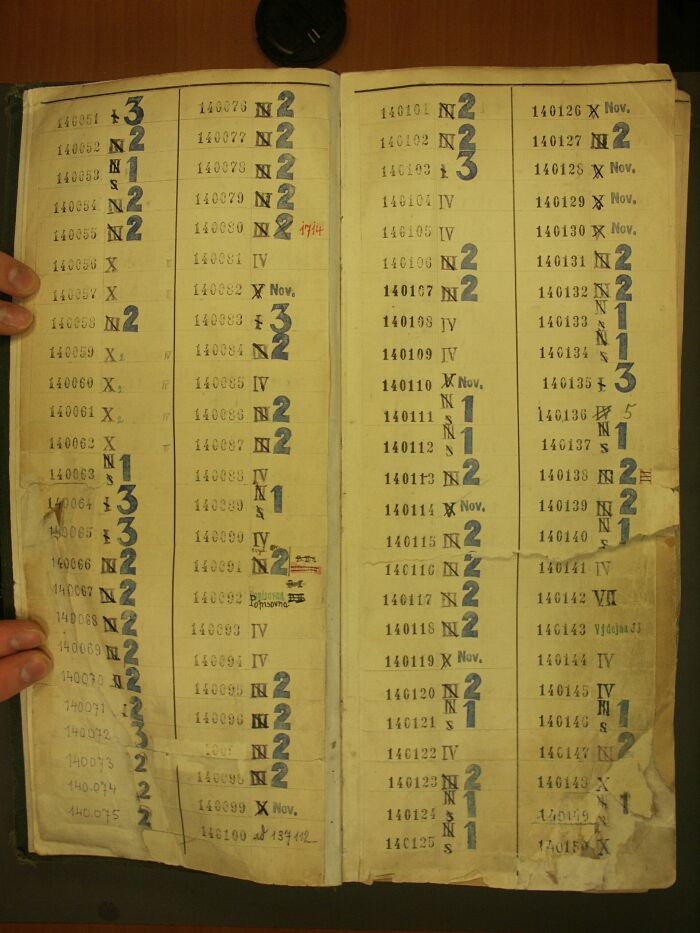 140051 ɫ 3
140052 N 2
140053 N s 1
140054 N 2
140055 N 2
140056 X
140057 X
140058 N 2
140059 X 2
140060 X 2
140061 X 2
140062 X
140063 N s 1
140064 ɫ 3
140065 ɫ 3
140066 N 2
140067 N 2
140068 N 2
140069 N 2
140070 N 2
140071 2
140072 3
140073 2
140.074 2
140.075 2
140076 N 2
140077 N 2
140078 N 2
140079 N 2
140080 N 2 1714
140081 IV
140082 X Nov.
140083 ɫ 3
140084 N 2
140085 IV
140086 N 2
140087 N 2
140088 IV
140089 N s 1
140090 IV
140091 N 2
140092 Popisovna
140093 IV
140094 IV
140095 N 2
140096 N 2
N 2
140098 N 2
140099 X Nov.
140100 ad 137112
140101 N 2
140102 N 2
140103 ɫ 3
140104 IV
140105 IV
140106 N 2
140107 N 2
140108 IV
140109 IV
140110 X Nov.
140111 N s 1
140112 N s 1
140113 N 2
140114 X Nov.
140115 N 2
140116 N 2
140117 N 2
140118 N 2
140119 X Nov.
140120 N 2
140121 N s 1
140122 IV
140123 N 2
140124 N s 1
140125 N s 1
140126 X Nov.
140127 N 2
140128 X Nov.
140129 X Nov.
140130 X Nov.
140131 N 2
140132 N 2
140133 N s 1
140134 N s 1
140135 ɫ 3
140136 IV 5
140137 N s 1
140138 N 2 III
140139 N 2
140140 N s 1
140141 IV
140142 VII
140143 Výdejna
140144 IV
140145 IV
140146 N s 1
140147 N 2
140148 X
140149 1
140150 X